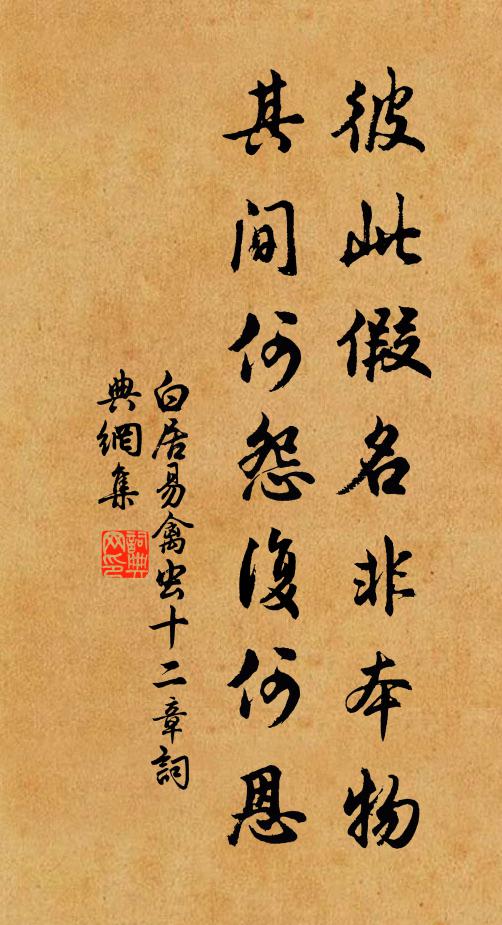 彼此假名非本物
其间何怨復何恩
白居易禽虫十二章詞
典網集
詞典
网印